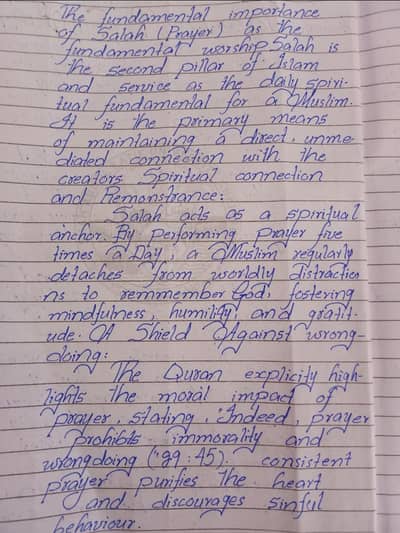 The fundamental importance
of Salah (Prayer) as the
fundamental worship Salah is
the second pillar of Islam
and service as the daily spiri-
tual fundamental for a Muslim.
It is the primary means
of maintaining a direct, unme
diated connection with the
creators Spiritual connection
and Remonstrance:
Salah acts as a spiritual
anchor. By performing prayer five
times a Day, a Muslim regularly
detaches from worldly distractio
ns to remmember God, fostering
mindfulness, humility, and gratit-
ude. A Shield Against wrong-
doing:
The Quran explicity high-
lights the moral impact of
prayer, stating, "Indeed, prayer
Prohibts immorality and
wrongdoing ("29:45). consistent
prayer purifies the heart
and discourages sinful
behaviour.